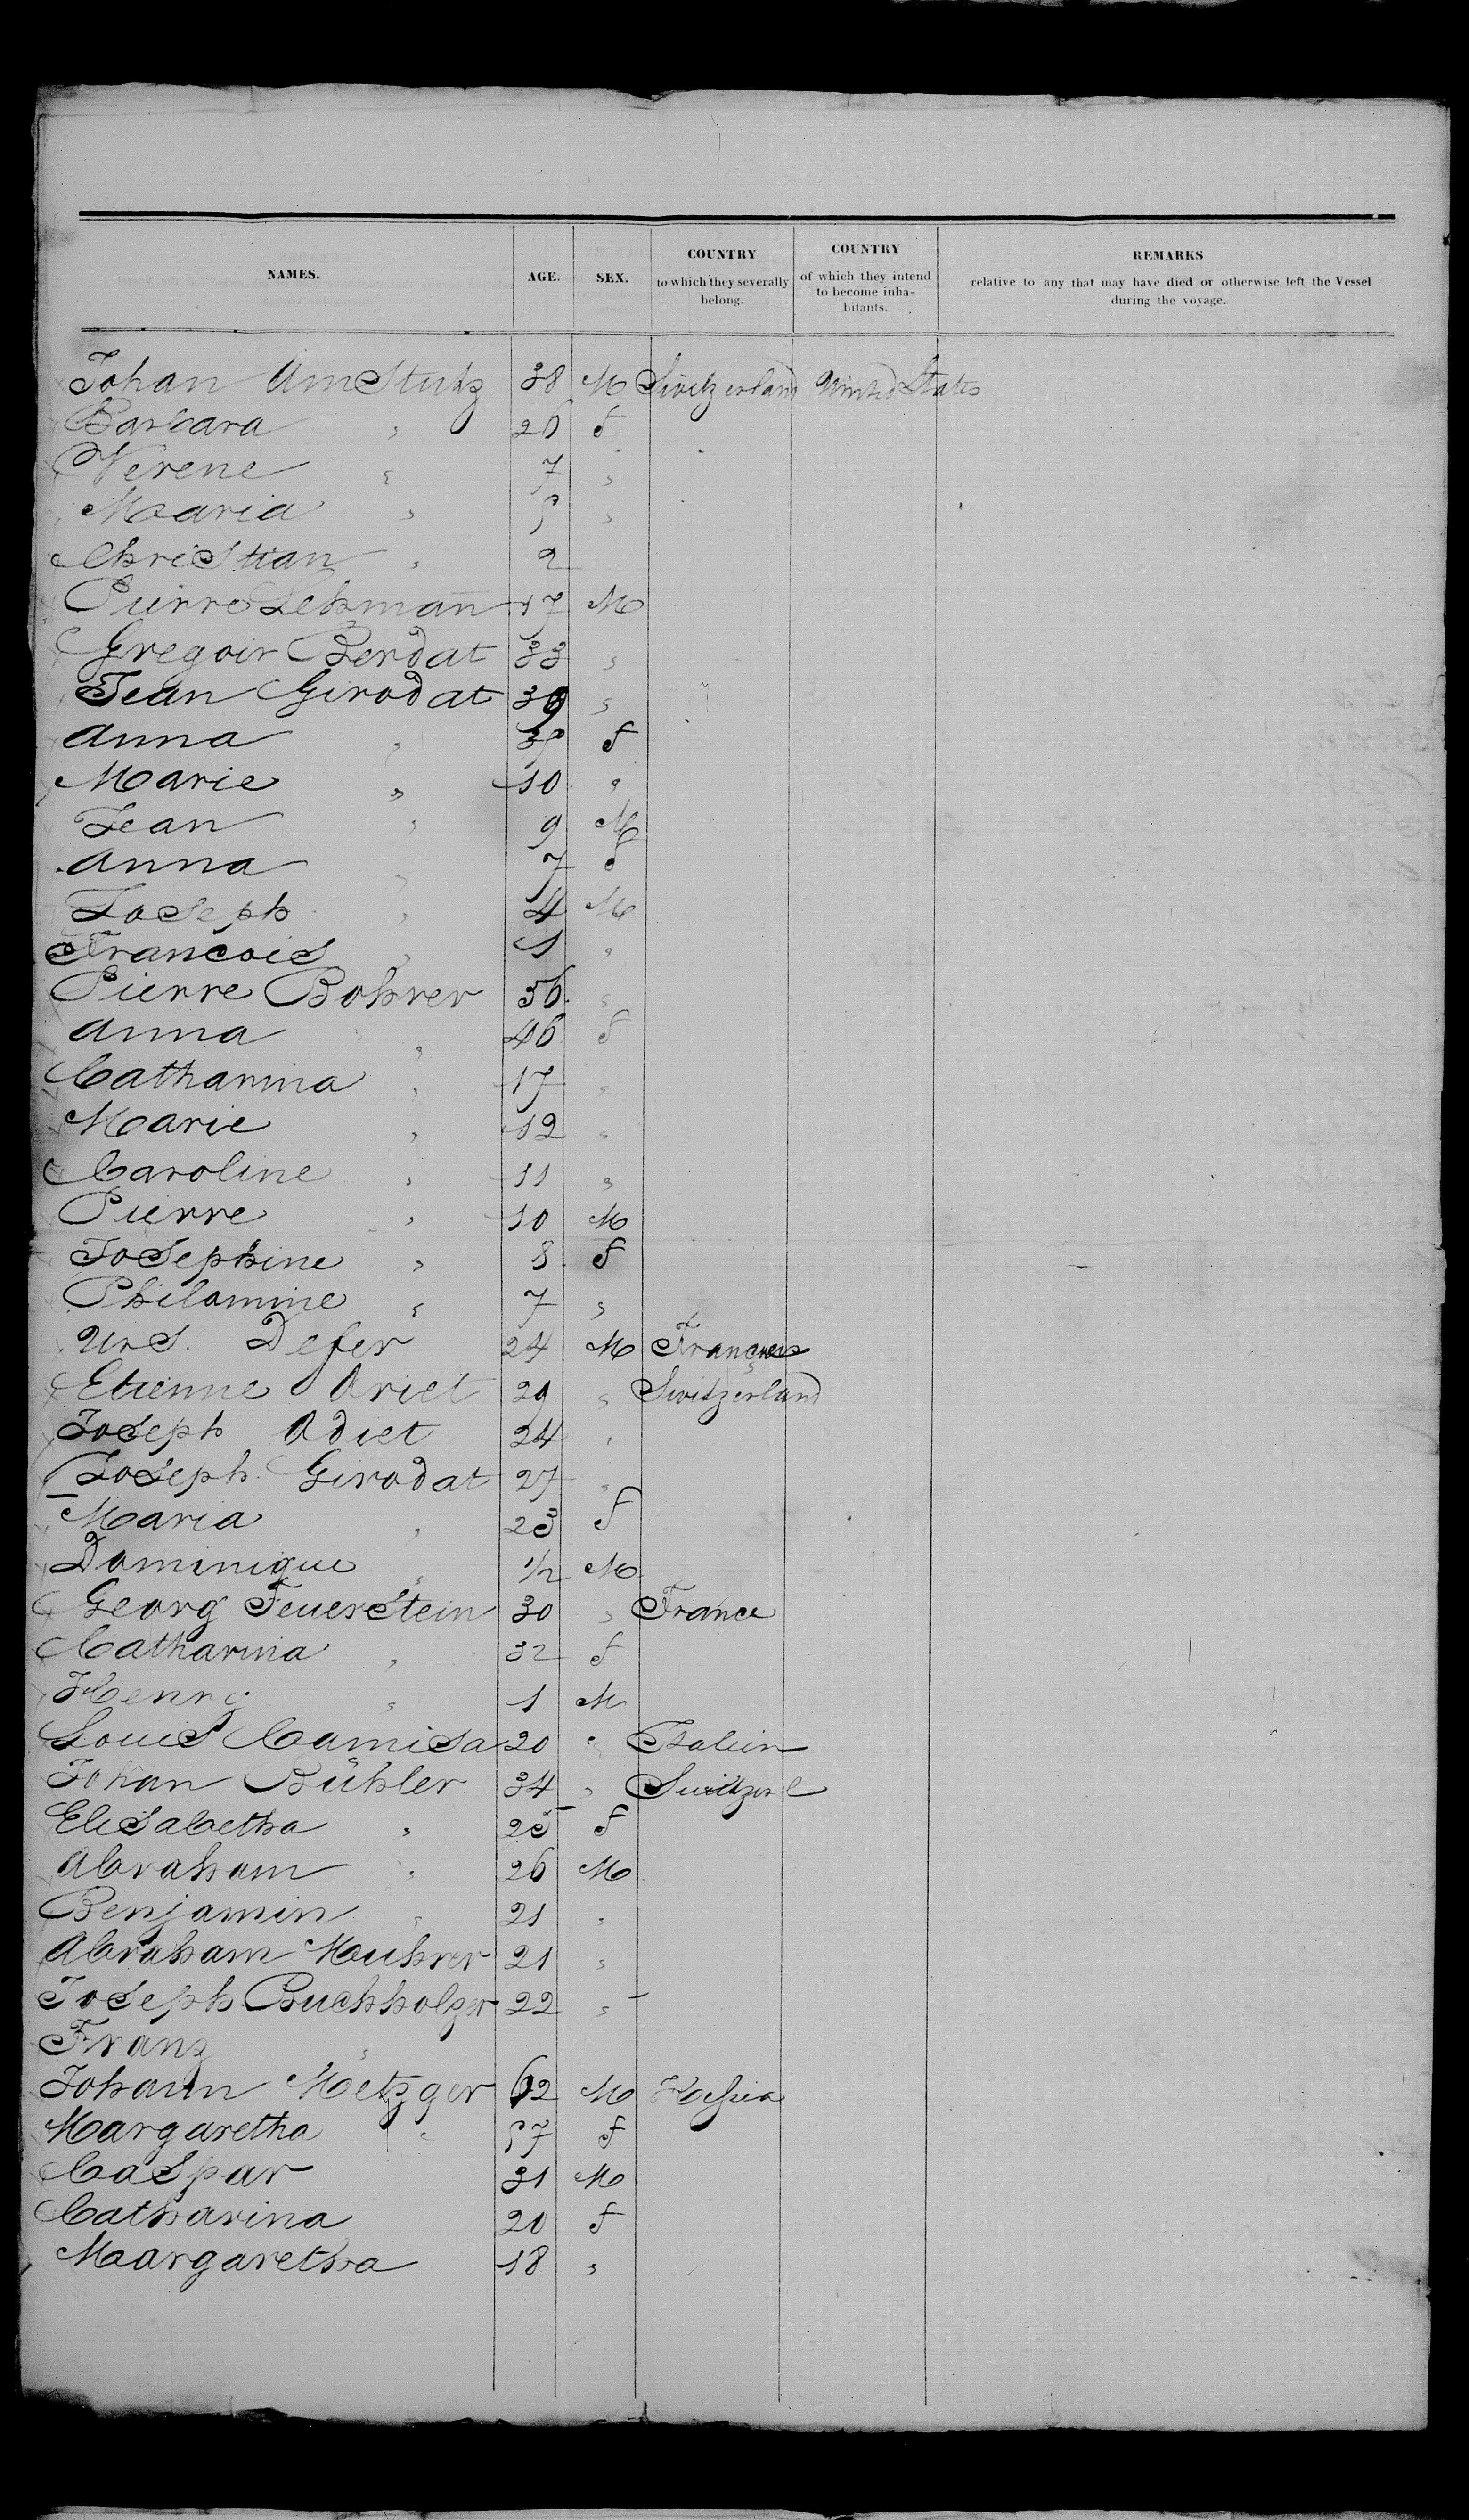 NAMES. AGE. SEX. COUNTRY to which they severally belong. COUNTRY of which they intend to become inhabitants. REMARKS relative to any that may have died or otherwise left the Vessel during the voyage.
Johan AmStutz 38 M Switzerland United States
Barbara " 26 f
Verene " 7 "
Maria " 5 "
Christian " 2
Pierre Lehmann 17 M
Gregoir Berdat 33 "
Jean Girodat 39 "
Anna " f
Marie " 10 "
Jean " 9 M
Anna " 7 f
Joseph " 4 M
Francois " 1 "
Pierre Bohrer 56 "
Anna " 46 f
Catharina " 17 "
Marie " 12 "
Caroline " 11 "
Pierre " 10 M
Josephine " 8 f
Philomine " 7 "
Urs. Defer 24 M France
Etienne Ariet 29 " Switzerland
Joseph Adiet 24 "
Joseph Girodat 27 "
Maria " 23 f
Dominique " 1/2 M
Georg Feuerstein 30 " France
Catharina " 32 f
Henry " 1 M
Louis Camisa 20 " Italien
Johan Bühler 34 " Switzerl
Elisabetha " 25 f
Abraham " 26 M
Benjamin " 21 "
Abraham Muhrer 21 "
Joseph Buchholzer 22 "
Franz "
Johann Metzger 62 M Hessia
Margaretha " 57 f
Caspar 31 M
Catharina 20 f
Margaretha 18 "